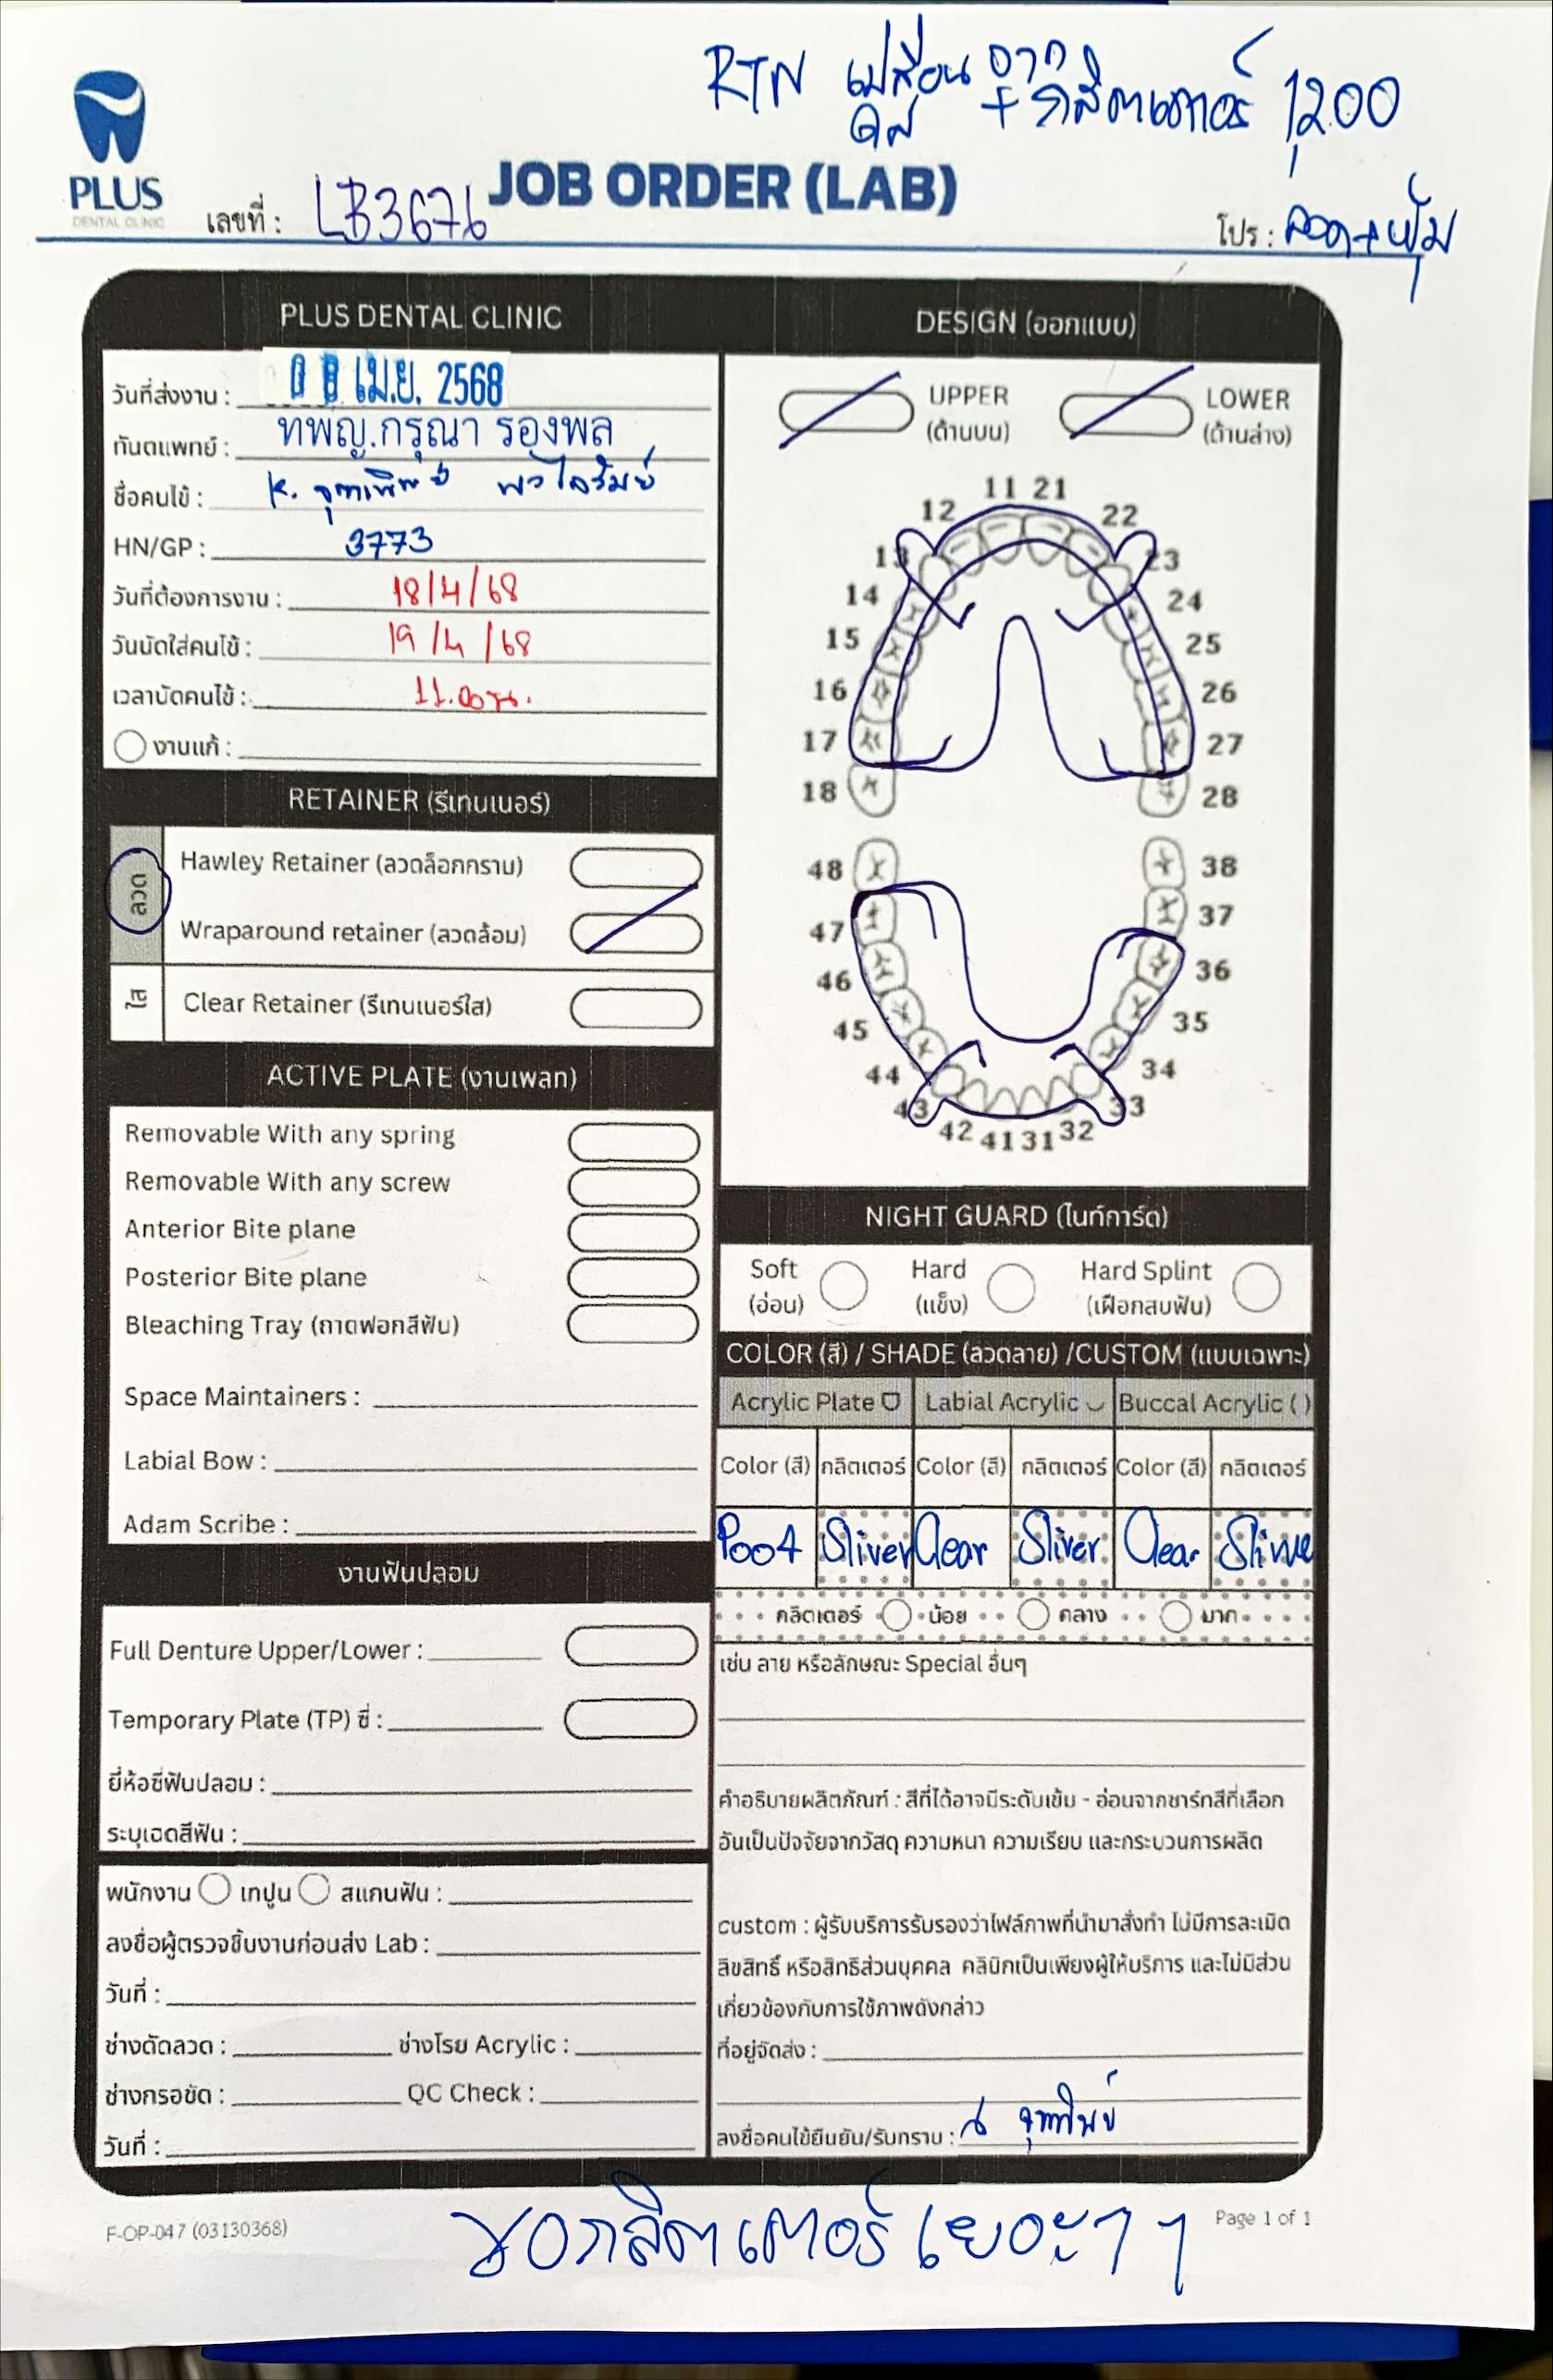 RTN เปลี่ยน จาก
ดิส + กลิตเตอร์ 1,200
PLUS
DENTAL CLINIC
JOB ORDER (LAB)
เลขที่ : LB3676
โปร : ลวด+พุ้ม
PLUS DENTAL CLINIC
วันที่ส่งงาน : 08 เม.ย. 2568
ทันตแพทย์ : ทพญ.กรุณา รองพล
ชื่อคนไข้ : K.
HN/GP : 3773
วันที่ต้องการงาน : 18/4/68
วันนัดใส่คนไข้ : 19/4/68
เวลานัดคนไข้ : 11.00น.
งานแก้ :
RETAINER (รีเทนเนอร์)
ลวด
Hawley Retainer (ลวดล็อกกราม)
Wraparound retainer (ลวดล้อม)
ใส
Clear Retainer (รีเทนเนอร์ใส)
ACTIVE PLATE (งานเพลท)
Removable With any spring
Removable With any screw
Anterior Bite plane
Posterior Bite plane
Bleaching Tray (ถาดฟอกสีฟัน)
Space Maintainers :
Labial Bow :
Adam Scribe :
งานฟันปลอม
Full Denture Upper/Lower :
Temporary Plate (TP) ซี่ :
ยี่ห้อซี่ฟันปลอม :
ระบุเฉดสีฟัน :
พนักงาน เทปูน สแกนฟัน :
ลงชื่อผู้ตรวจชิ้นงานก่อนส่ง Lab :
วันที่ :
ช่างดัดลวด : ช่างโรย Acrylic :
ช่างกรอขัด : QC Check :
วันที่ :
DESIGN (ออกแบบ)
UPPER LOWER
(ด้านบน) (ด้านล่าง)
11 21
12 22
13 23
14 24
15 25
16 26
17 27
18 28
48 38
47 37
46 36
45 35
44 34
43 33
42 41 31 32
NIGHT GUARD (ไนท์การ์ด)
Soft Hard Hard Splint
(อ่อน) (แข็ง) (เฝือกสบฟัน)
COLOR (สี) / SHADE (ลวดลาย) /CUSTOM (แบบเฉพาะ)
Acrylic Plate Labial Acrylic Buccal Acrylic ( )
Color (สี) กลิตเตอร์ Color (สี) กลิตเตอร์ Color (สี) กลิตเตอร์
P004 Sliver Clear Sliver Clear Slive
กลิตเตอร์ น้อย กลาง มาก
เช่น ลาย หรือลักษณะ Special อื่นๆ
คำอธิบายผลิตภัณฑ์ : สีที่ได้อาจมีระดับเข้ม - อ่อนจากชาร์ทสีที่เลือก
อันเป็นปัจจัยจากวัสดุ ความหนา ความเรียบ และกระบวนการผลิต
custom : ผู้รับบริการรับรองว่าไฟล์ภาพที่นำมาสั่งทำ ไม่มีการละเมิด
ลิขสิทธิ์ หรือสิทธิส่วนบุคคล คลินิกเป็นเพียงผู้ให้บริการ และไม่มีส่วน
เกี่ยวข้องกับการใช้ภาพดังกล่าว
ที่อยู่จัดส่ง :
ลงชื่อคนไข้ยืนยัน/รับทราบ :
F-OP-047 (03130368)
Page 1 of 1
ขอกลิตเตอร์เยอะๆๆ